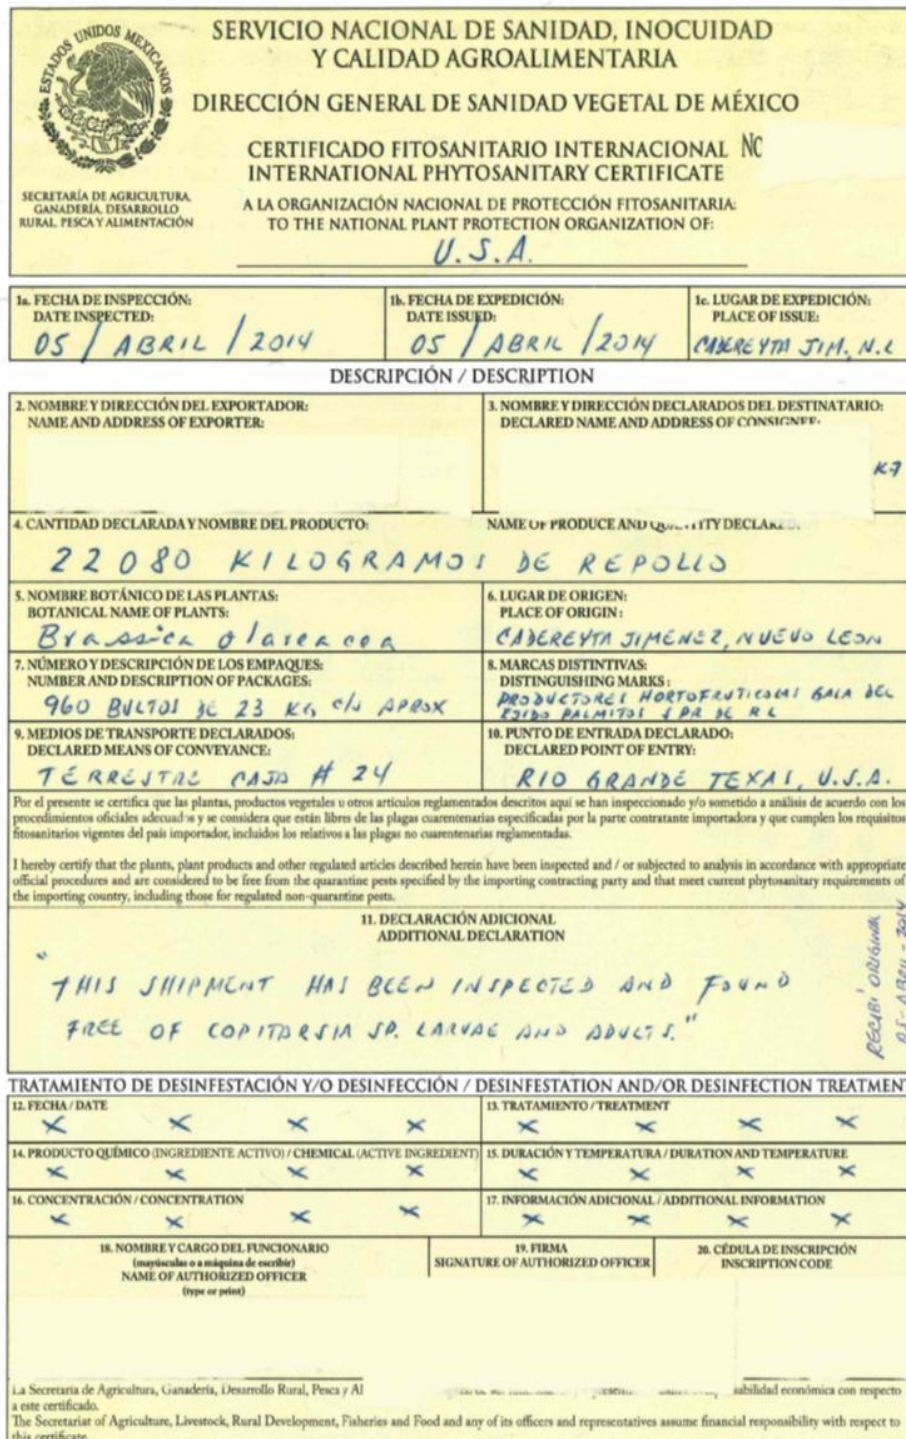 ESTADOS UNIDOS MEXICANOS
SECRETARÍA DE AGRICULTURA,
GANADERÍA, DESARROLLO
RURAL, PESCA Y ALIMENTACIÓN
SERVICIO NACIONAL DE SANIDAD, INOCUIDAD
Y CALIDAD AGROALIMENTARIA
DIRECCIÓN GENERAL DE SANIDAD VEGETAL DE MÉXICO
CERTIFICADO FITOSANITARIO INTERNACIONAL
INTERNATIONAL PHYTOSANITARY CERTIFICATE
A LA ORGANIZACIÓN NACIONAL DE PROTECCIÓN FITOSANITARIA:
TO THE NATIONAL PLANT PROTECTION ORGANIZATION OF:
U.S.A.
1a. FECHA DE INSPECCIÓN:
DATE INSPECTED:
05 / ABRIL / 2014
1b. FECHA DE EXPEDICIÓN:
DATE ISSUED:
05 / ABRIL / 2014
1c. LUGAR DE EXPEDICIÓN:
PLACE OF ISSUE:
CADEREYTA JIM., N.L
DESCRIPCIÓN / DESCRIPTION
2. NOMBRE Y DIRECCIÓN DEL EXPORTADOR:
NAME AND ADDRESS OF EXPORTER:
3. NOMBRE Y DIRECCIÓN DECLARADOS DEL DESTINATARIO:
DECLARED NAME AND ADDRESS OF CONSIGNEE:
K-7
4. CANTIDAD DECLARADA Y NOMBRE DEL PRODUCTO:
NAME OF PRODUCE AND QUANTITY DECLARED:
22080 KILOGRAMOS DE REPOLLO
5. NOMBRE BOTÁNICO DE LAS PLANTAS:
BOTANICAL NAME OF PLANTS:
Brassica olareacea
6. LUGAR DE ORIGEN:
PLACE OF ORIGIN:
CADEREYTA JIMENEZ, NUEVO LEON
7. NÚMERO Y DESCRIPCIÓN DE LOS EMPAQUES:
NUMBER AND DESCRIPTION OF PACKAGES:
960 BULTOS DE 23 KG c/u APROX
8. MARCAS DISTINTIVAS:
DISTINGUISHING MARKS:
PRODUCTORES HORTOFRUTICOLAS GAIA DEL
EJIDO PALMITOS S PR DE R L
9. MEDIOS DE TRANSPORTE DECLARADOS:
DECLARED MEANS OF CONVEYANCE:
TERRESTRE CAJA # 24
10. PUNTO DE ENTRADA DECLARADO:
DECLARED POINT OF ENTRY:
RIO GRANDE TEXAS, U.S.A.
Por el presente se certifica que las plantas, productos vegetales u otros artículos reglamentados descritos aquí se han inspeccionado y/o sometido a análisis de acuerdo con los
procedimientos oficiales adecuados y se considera que están libres de las plagas cuarentenarias especificadas por la parte contratante importadora y que cumplen los requisitos
fitosanitarios vigentes del país importador, incluidos los relativos a las plagas no cuarentenarias reglamentadas.
I hereby certify that the plants, plant products and other regulated articles described herein have been inspected and / or subjected to analysis in accordance with appropriate
official procedures and are considered to be free from the quarantine pests specified by the importing contracting party and that meet current phytosanitary requirements of
the importing country, including those for regulated non-quarantine pests.
11. DECLARACIÓN ADICIONAL
ADDITIONAL DECLARATION
"THIS SHIPMENT HAS BEEN INSPECTED AND FOUND
FREE OF COPITARSIA SP. LARVAE AND ADULTS."
RECIBI ORIGINAL
05-ABRIL-2014
TRATAMIENTO DE DESINFESTACIÓN Y/O DESINFECCIÓN / DESINFESTATION AND/OR DESINFECTION TREATMENT
12. FECHA / DATE
X X X X
13. TRATAMIENTO / TREATMENT
X X X X
14. PRODUCTO QUÍMICO (INGREDIENTE ACTIVO) / CHEMICAL (ACTIVE INGREDIENT)
X X X X
15. DURACIÓN Y TEMPERATURA / DURATION AND TEMPERATURE
X X X X
16. CONCENTRACIÓN / CONCENTRATION
X X X X
17. INFORMACIÓN ADICIONAL / ADDITIONAL INFORMATION
X X X X
18. NOMBRE Y CARGO DEL FUNCIONARIO
(mayúsculas o a máquina de escribir)
NAME OF AUTHORIZED OFFICER
(type or print)
19. FIRMA
SIGNATURE OF AUTHORIZED OFFICER
20. CÉDULA DE INSCRIPCIÓN
INSCRIPTION CODE
La Secretaría de Agricultura, Ganadería, Desarrollo Rural, Pesca y económica con respecto
a este certificado.
The Secretariat of Agriculture, Livestock, Rural Development, Fisheries and Food and any of its officers and representatives assume financial responsibility with respect to
this certificate.